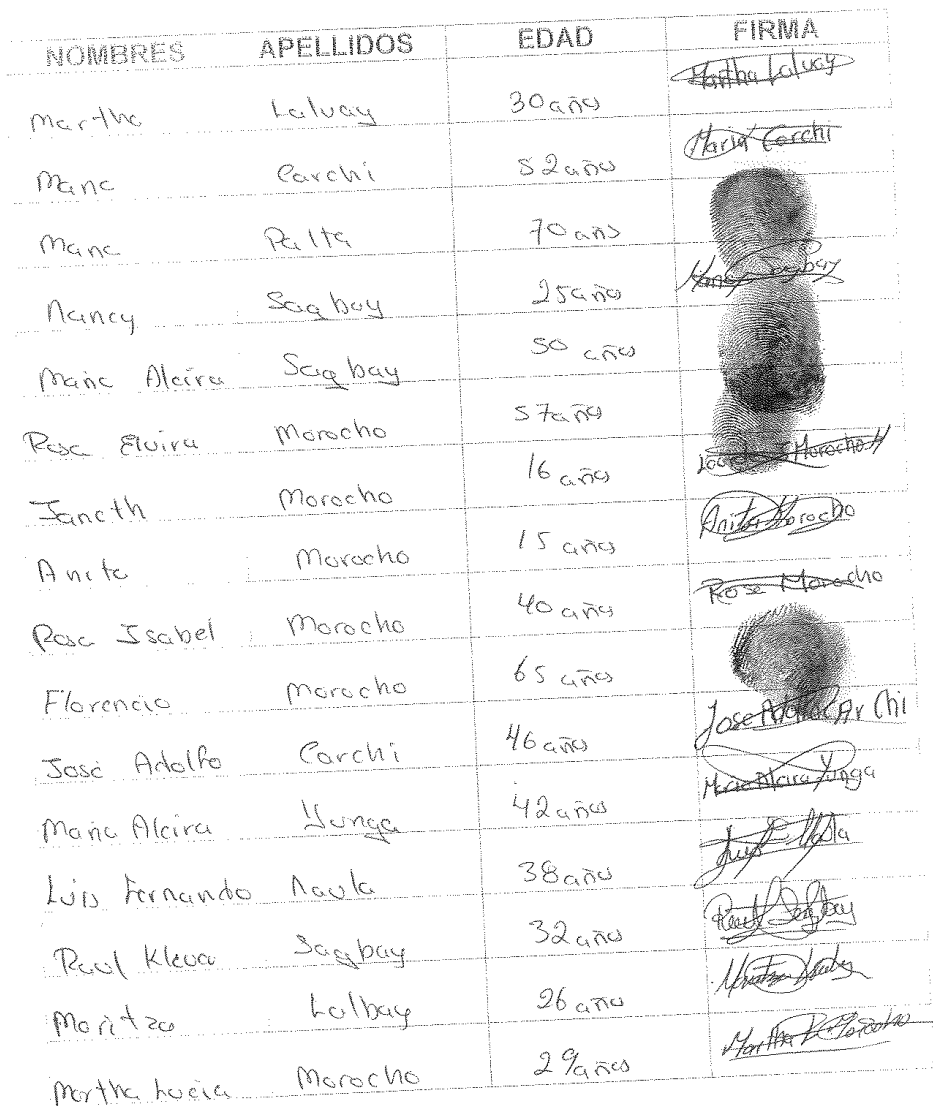 NOMBRES APELLIDOS EDAD FIRMA
Martha Laluay 30 años Martha Laluay
Maria Carchi 52 años Maria Carchi
Maria Palta 70 años
Nancy Sagbay 25 años Nancy Sagbay
Maria Alcira Sagbay 50 años
Rosa Elvira Morocho 57 años
Janeth Morocho 16 años Morocho M
Anita Morocho 15 años Anita Morocho
Rosa Isabel Morocho 40 años Rosa Morocho
Florencio Morocho 65 años
José Adolfo Carchi 46 años Jose Adolfo CAr Chi
Maria Alcira Yunga 42 años Maria Alcira Yunga
Luis Fernando Naula 38 años
Raul Kleva Sagbay 32 años Raul Sagbay
Maritza Lalbay 26 años
Martha Lucia Morocho 29 años Martha L Morocho